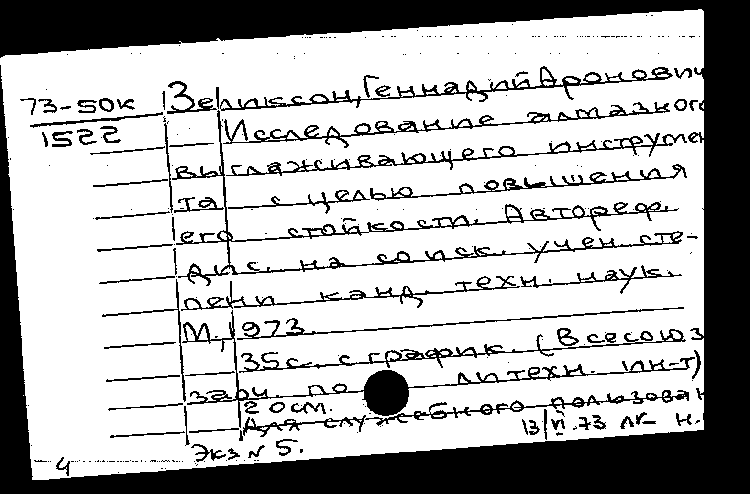 73-50к
1522
Зеликсон, Геннадий Аронович
Исследование алмазного
выглаживающего инструмен
та с целью повышения
его стойкости. Автореф.
дис. на соиск. учен. сте-
пени канд. техн. наук.
М., 1973.
35с. с график. (Всесоюз
заоч. по литехн. ин-т)
20см.
Для служебного пользован
13/VI.73 лк н.
Экз N 5.
4